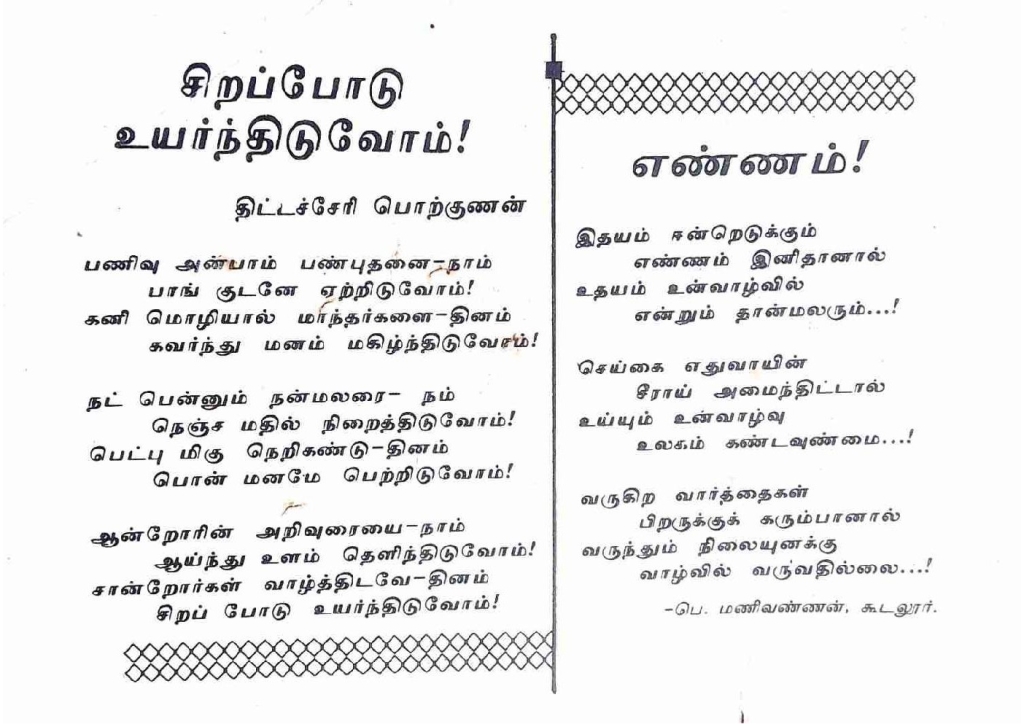 சிறப்போடு
உயர்ந்திடுவோம்!
திட்டச்சேரி பொற்குணன்
பணிவு அன்பாம் பண்புதனை-நாம்
பாங் குடனே ஏற்றிடுவோம்!
கனி மொழியால் மாந்தர்களை-தினம்
கவர்ந்து மனம் மகிழ்ந்திடுவோம்!
நட் பென்னும் நன்மலரை- நம்
நெஞ்ச மதில் நிறைத்திடுவோம்!
பெட்பு மிகு நெறிகண்டு-தினம்
பொன் மனமே பெற்றிடுவோம்!
ஆன்றோரின் அறிவுரையை-நாம்
ஆய்ந்து உளம் தெளிந்திடுவோம்!
சான்றோர்கள் வாழ்த்திடவே-தினம்
சிறப் போடு உயர்ந்திடுவோம்!
எண்ணம்!
இதயம் ஈன்றெடுக்கும்
எண்ணம் இனிதானால்
உதயம் உன்வாழ்வில்
என்றும் தான்மலரும்...!
செய்கை எதுவாயின்
சீராய் அமைந்திட்டால்
உய்யும் உன்வாழ்வு
உலகம் கண்டவுண்மை...!
வருகிற வார்த்தைகள்
பிறருக்குக் கரும்பானால்
வருந்தும் நிலையுனக்கு
வாழ்வில் வருவதில்லை...!
-பெ. மணிவண்ணன், கூடலூர்.